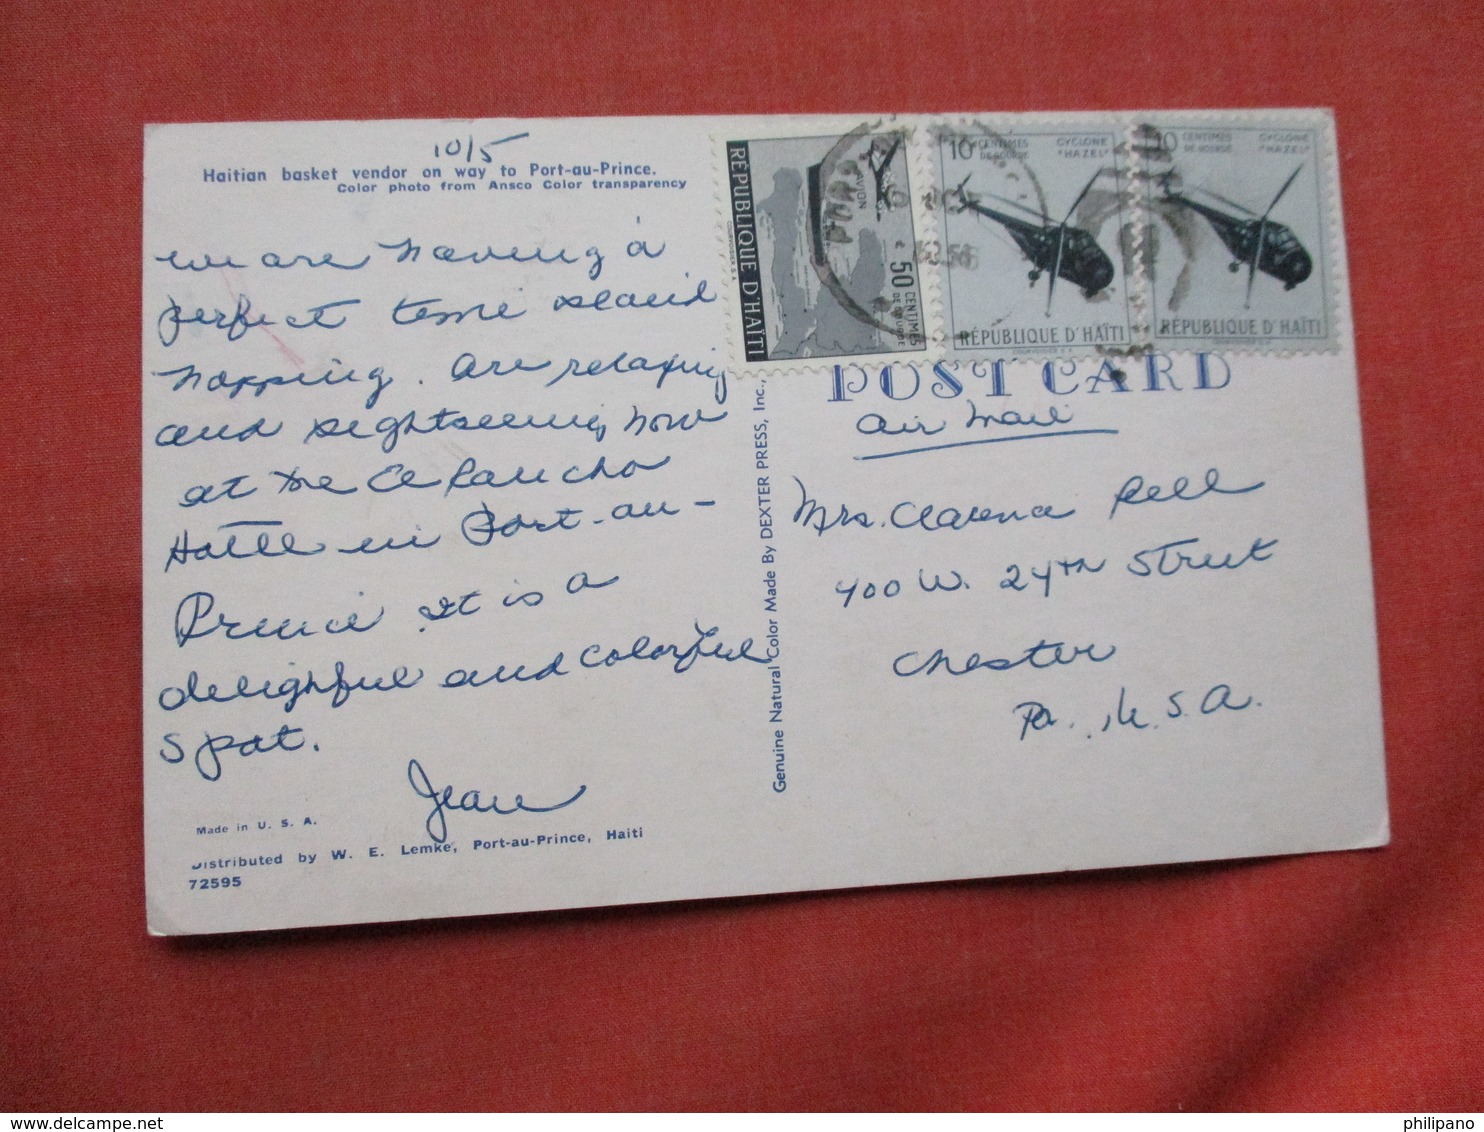 10/5
Haitian basket vendor on way to Port-au-Prince.
Color photo from Ansco Color transparency
We are having a
perfect time island
hopping. Are relaxing
and sightseeing now
at the El Rancho
Hotel in Port-au-
Prince. It is a
delightful and colorful
spot.
Jean
Made in U. S. A.
Distributed by W. E. Lemke, Port-au-Prince, Haiti
72595
Genuine Natural Color Made By DEXTER PRESS, Inc.,
RÉPUBLIQUE D'HAÏTI
AVION
50 CENTIMES
DE GOURDE
10 CENTIMES
DE GOURDE
CYCLONE
"HAZEL"
RÉPUBLIQUE D'HAÏTI
10 CENTIMES
DE GOURDE
CYCLONE
"HAZEL"
RÉPUBLIQUE D'HAÏTI
POST CARD
Air Mail
Mrs. Clarence Pell
400 W. 24th Street
Chester
Pa. U.S.A.
philipano